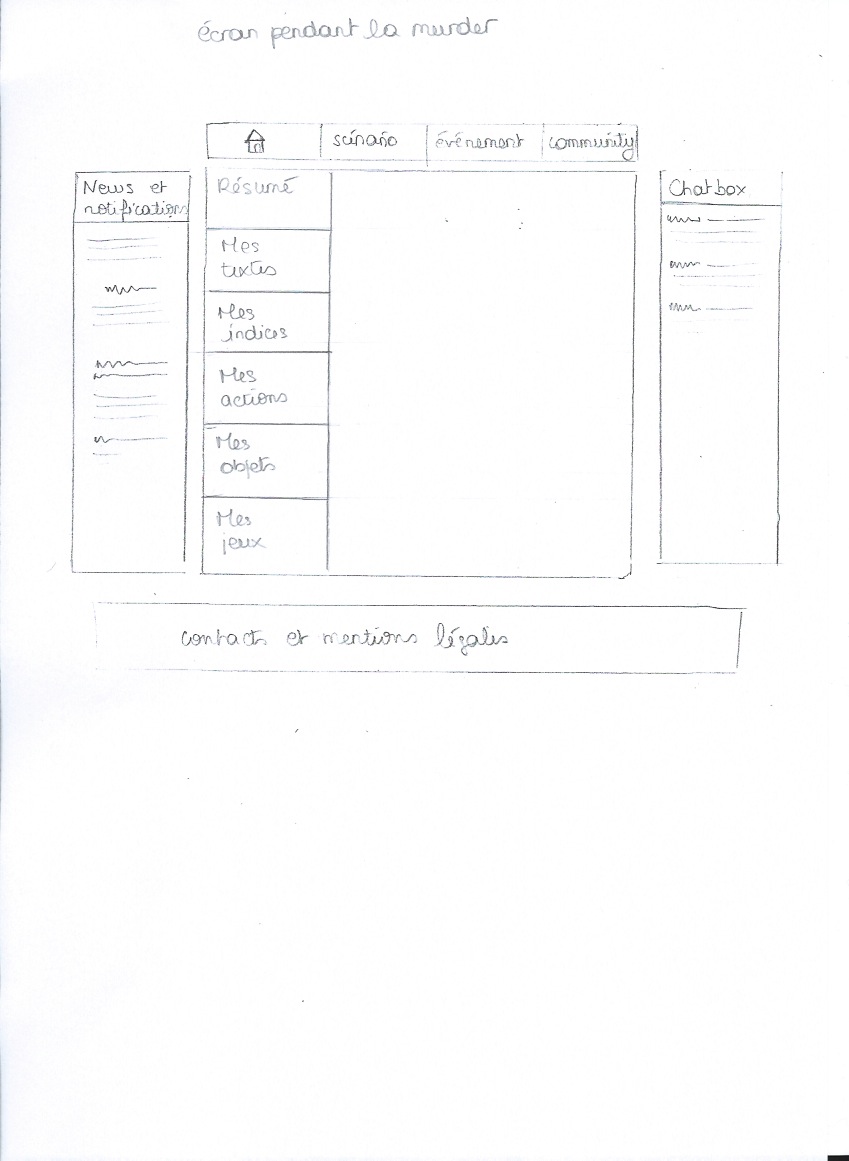 écran pendant la murder
scénario
événement
community
News et
notifications
Résumé
Mes
textes
Mes
indices
Mes
actions
Mes
objets
Mes
jeux
Chatbox
contacts et mentions légales